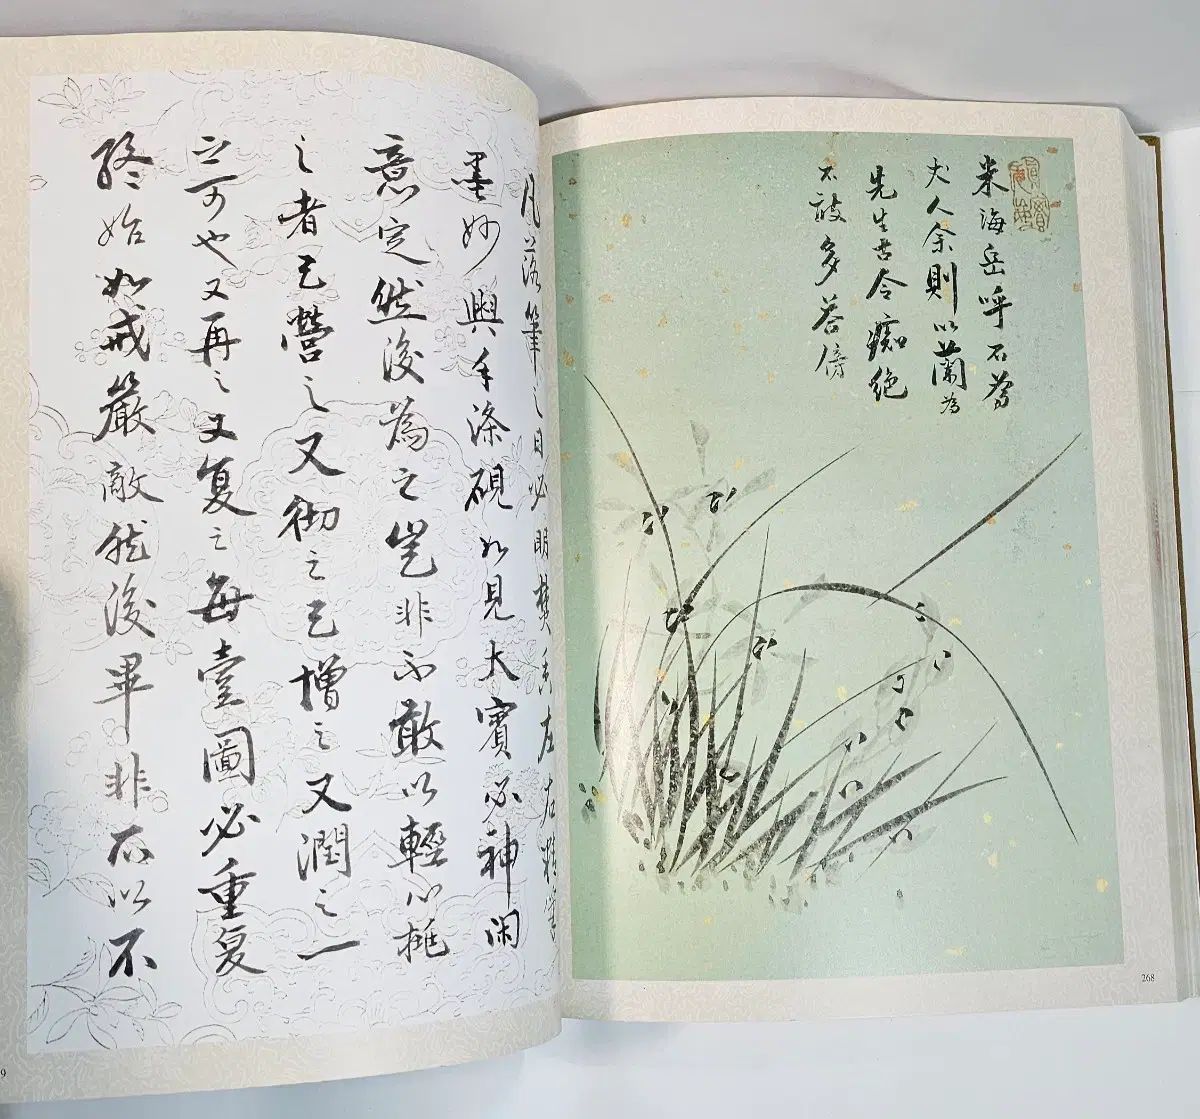 米海岳呼石為
丈人余則以蘭為
先生古今癡絕
多
凡落筆之日必明焚香左右精筆
墨妙與手滌硯如見大賓必神閑
意定然後為之豈非不敢以輕心挑
之者已營之又徹之已增之又潤之一
之可也又再之又复之每壹圖必重复
終始如戒嚴敵然後畢非不以不
268
9